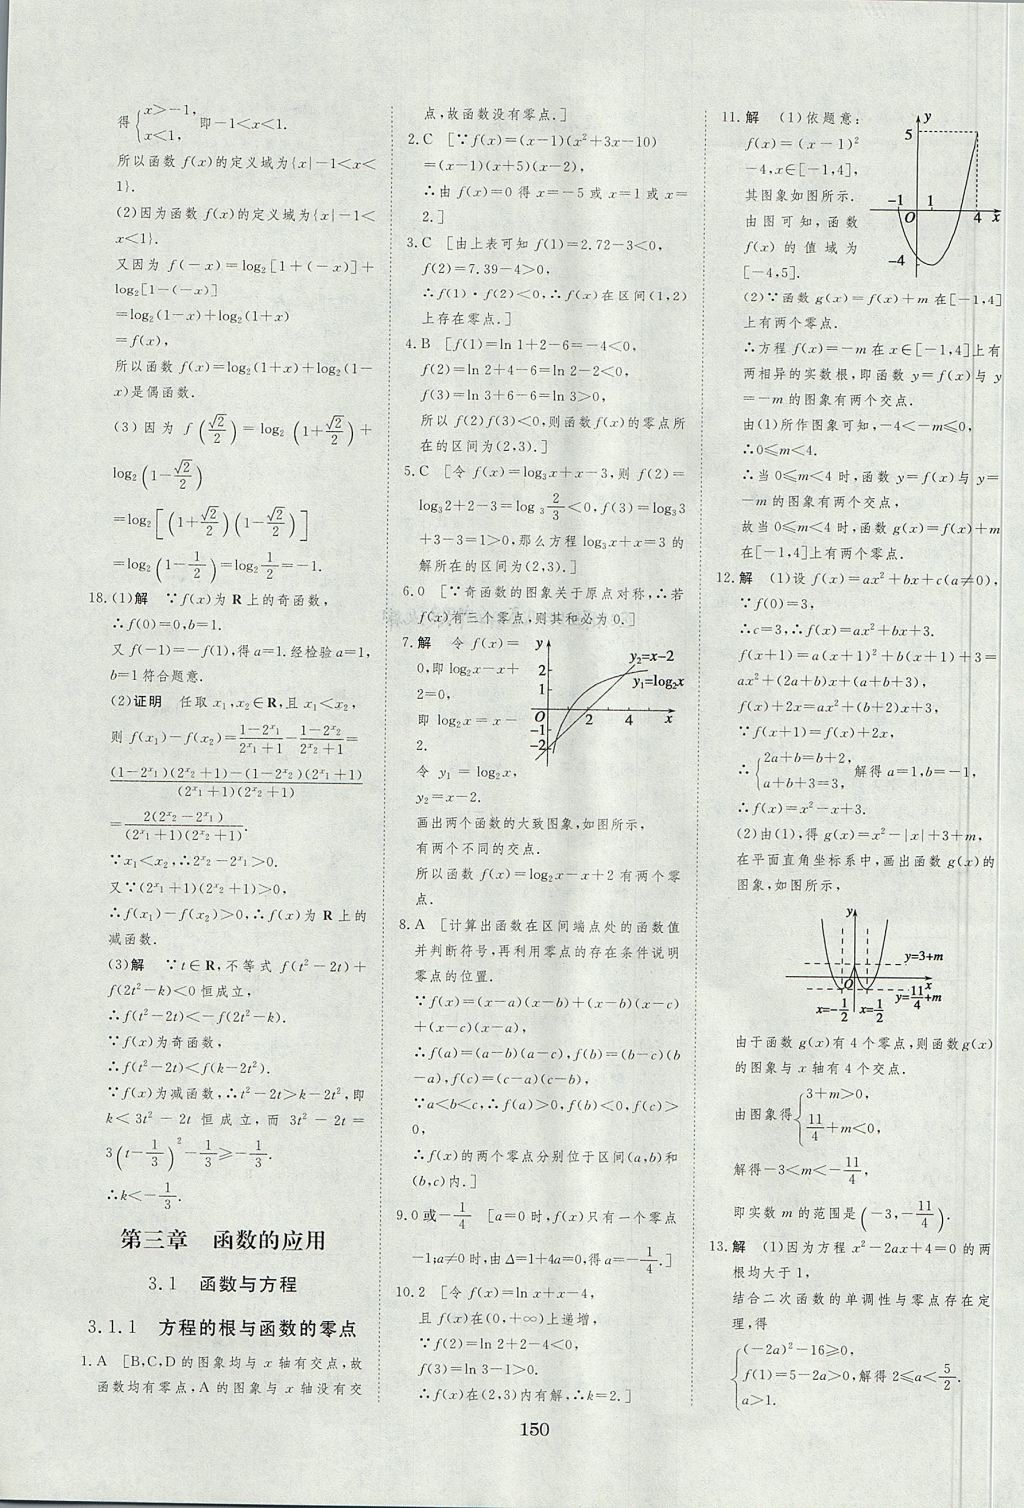 得{x>-1, x<1, 即-1<x<1.
所以函数 f(x)的定义域为{x|-1<x<
1}.
(2)因为函数 f(x)的定义域为{x|-1<
x<1}.
又因为 f(-x)=log₂[1+(-x)]+
log₂[1-(-x)]
=log₂(1-x)+log₂(1+x)
=f(x),
所以函数 f(x)=log₂(1+x)+log₂(1-
x)是偶函数.
(3)因为 f(√2/2)=log₂(1+√2/2)+
log₂(1-√2/2)
=log₂[(1+√2/2)(1-√2/2)]
=log₂(1-1/2)=log₂1/2=-1.
18.(1)解 ∵f(x)为 R 上的奇函数,
∴f(0)=0,b=1.
又 f(-1)=-f(1),得 a=1.经检验 a=1,
b=1 符合题意.
(2)证明 任取 x₁,x₂∈R,且 x₁<x₂,
则 f(x₁)-f(x₂)=(1-2^x₁)/(2^x₁+1)-(1-2^x₂)/(2^x₂+1)=
(1-2^x₁)(2^x₂+1)-(1-2^x₂)(2^x₁+1)
/(2^x₁+1)(2^x₂+1)
=2(2^x₂-2^x₁)/(2^x₁+1)(2^x₂+1).
∵x₁<x₂,∴2^x₂-2^x₁>0.
又∵(2^x₁+1)(2^x₂+1)>0,
∴f(x₁)-f(x₂)>0,∴f(x)为 R 上的
减函数.
(3)解 ∵t∈R,不等式 f(t²-2t)+
f(2t²-k)<0 恒成立,
∴f(t²-2t)<-f(2t²-k).
∵f(x)为奇函数,
∴f(t²-2t)<f(k-2t²).
∵f(x)为减函数,∴t²-2t>k-2t²,即
k<3t²-2t 恒成立,而 3t²-2t=
3(t-1/3)²-1/3≥-1/3.
∴k<-1/3.
第三章 函数的应用
3.1 函数与方程
3.1.1 方程的根与函数的零点
1.A [B,C,D 的图象均与 x 轴有交点,故
函数均有零点,A 的图象与 x 轴没有交
点,故函数没有零点.]
2.C [∵f(x)=(x-1)(x²+3x-10)
=(x-1)(x+5)(x-2),
∴由 f(x)=0 得 x=-5 或 x=1 或 x=
2.]
3.C [由上表可知 f(1)=2.72-3<0,
f(2)=7.39-4>0,
∴f(1)·f(2)<0,∴f(x)在区间(1,2)
上存在零点.]
4.B [f(1)=ln 1+2-6=-4<0,
f(2)=ln 2+4-6=ln 2-2<0,
f(3)=ln 3+6-6=ln 3>0,
所以 f(2)f(3)<0,则函数 f(x)的零点所
在的区间为(2,3).]
5.C [令 f(x)=log₃x+x-3,则 f(2)=
log₃2+2-3=log₃2/3<0,f(3)=log₃3
+3-3=1>0,那么方程 log₃x+x=3 的
解所在的区间为(2,3).]
6.0 [∵奇函数的图象关于原点对称,∴若
f(x)有三个零点,则其和必为 0.]
7.解 令 f(x)=
0,即 log₂x-x+
2=0,
即 log₂x=x-
2.
令 y₁=log₂x,
y₂=x-2.
y
y₂=x-2
2
1
y₁=log₂x
O
2
4
x
-1
-2
画出两个函数的大致图象,如图所示,
有两个不同的交点.
所以函数 f(x)=log₂x-x+2 有两个零
点.
8.A [计算出函数在区间端点处的函数值
并判断符号,再利用零点的存在条件说明
零点的位置.
∵f(x)=(x-a)(x-b)+(x-b)(x-c)
+(x-c)(x-a),
∴f(a)=(a-b)(a-c),f(b)=(b-c)(b
-a),f(c)=(c-a)(c-b)
∵a<b<c,∴f(a)>0,f(b)<0,f(c)>
0,
∴f(x)的两个零点分别位于区间(a,b)和
(b,c)内.]
9.0或-1/4 [a=0 时,f(x)只有一个零点
-1;a≠0时,由 Δ=1+4a=0,得 a=-1/4.]
10.2 [令 f(x)=ln x+x-4,
且 f(x)在(0,+∞)上递增,
∵f(2)=ln 2+2-4<0,
f(3)=ln 3-1>0.
∴f(x)在(2,3)内有解,∴k=2.]
11.解 (1)依题意:
f(x)=(x-1)²
-4,x∈[-1,4],
其图象如图所示.
由图可知,函数
f(x)的值域为
[-4,5].
y
5
-1
O
1
4
x
-4
(2)∵函数 g(x)=f(x)+m 在[-1,4]
上有两个零点.
∴方程 f(x)=-m 在 x∈[-1,4]上有
两相异的实数根,即函数 y=f(x)与 y
=-m 的图象有两个交点.
由(1)所作图象可知,-4<-m≤0,
∴0≤m<4.
∴当 0≤m<4 时,函数 y=f(x)与 y=
-m 的图象有两个交点,
故当 0≤m<4 时,函数 g(x)=f(x)+m
在[-1,4]上有两个零点.
12.解 (1)设 f(x)=ax²+bx+c(a≠0),
∵f(0)=3,
∴c=3,∴f(x)=ax²+bx+3.
f(x+1)=a(x+1)²+b(x+1)+3=
ax²+(2a+b)x+(a+b+3),
f(x)+2x=ax²+(b+2)x+3,
∵f(x+1)=f(x)+2x,
∴{2a+b=b+2, a+b+3=3, 解得 a=1,b=-1,
∴f(x)=x²-x+3.
(2)由(1),得 g(x)=x²-|x|+3+m,
在平面直角坐标系中,画出函数 g(x)的
图象,如图所示,
y
y=3+m
O
x
x=-1/2
x=1/2
y=11/4+m
由于函数 g(x)有 4 个零点,则函数 g(x)
的图象与 x 轴有 4 个交点.
由图象得{3+m>0, 11/4+m<0,
解得-3<m<-11/4,
即实数 m 的范围是(-3,-11/4).
13.解 (1)因为方程 x²-2ax+4=0 的两
根均大于 1,
结合二次函数的单调性与零点存在定
理,得
{(-2a)²-16≥0, f(1)=5-2a>0, a>1. 解得 2≤a<5/2.
150